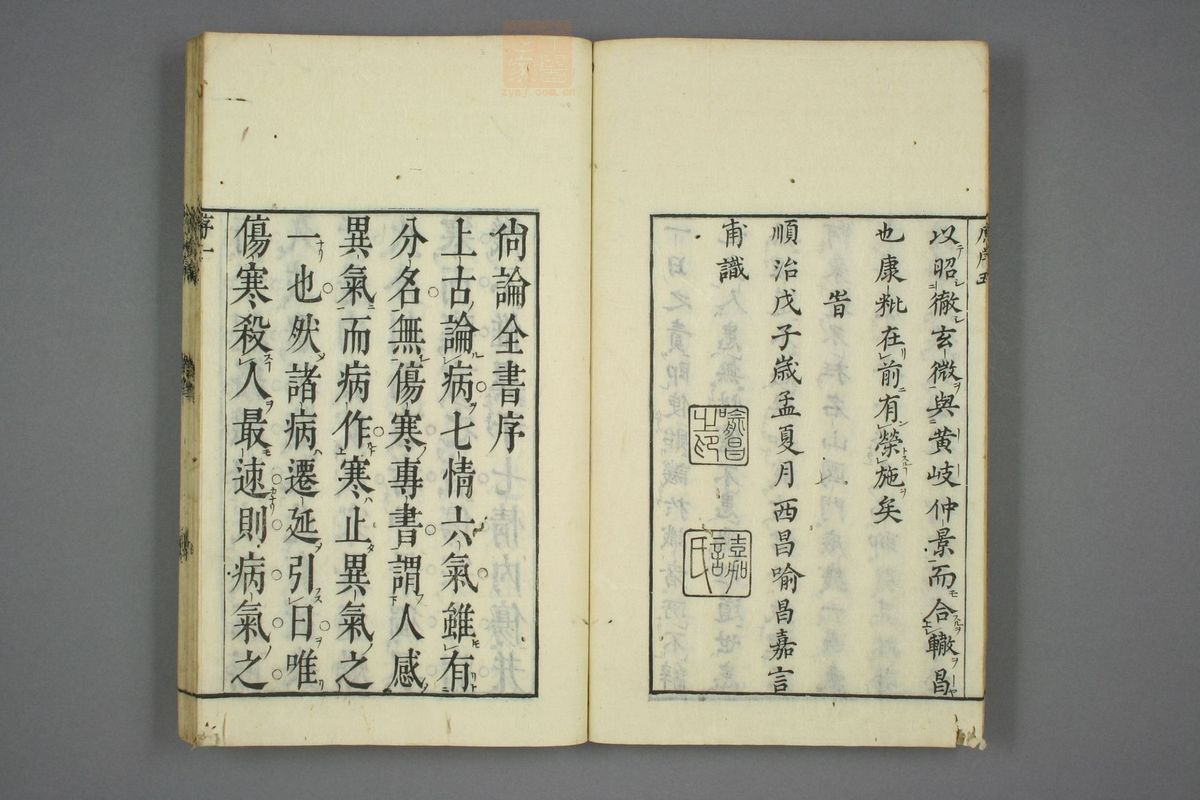 以昭徹玄微與黄岐仲景而合轍昌
也康粃在前有榮施矣
旹
順治戊子歲孟夏月西昌喻昌嘉言
甫識
喻昌之印
嘉言氏
尚論全書序
上古論病七情六氣雖有
分名無傷寒專書謂人感
異氣而病作寒止異氣之
一也然諸病遷延引日唯
傷寒殺人最速則病氣之
序一
zysj.com.cn